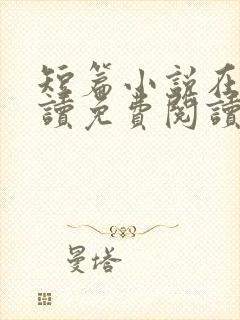 短篇小說在
讀免費閱讀
曼塔